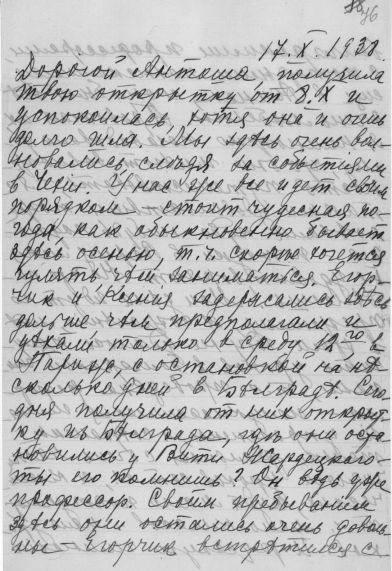 76
17. X. 1938.
Дорогой Антоша получила
твою открытку от 8. X и
успокоилась, хотя она и очень
долго шла. Мы здѣсь очень вол-
новались слѣдя за событіями
в Чехіи. У нас уже все идет своим
порядком – стоит чудесная по-
года, как обыкновенно бывает
здѣсь осенью, т. ч. скорѣе хочется
гулять чѣм заниматься. Егор-
чик и Ксенія задержались здѣсь
дольше чѣм предполагали и
уѣхали только в среду 12го в
Париж, с остановкой на нѣ-
сколько дней в Бѣлградѣ. Сего-
дня получила от них открыт-
ку из Бѣлграда, гдѣ они оста-
новились у Вити
ты его помнишь? Он вѣдь уже
профессор. Своим пребыванием
здѣсь они остались очень доволь-
ны – Егорчик встрѣтился с